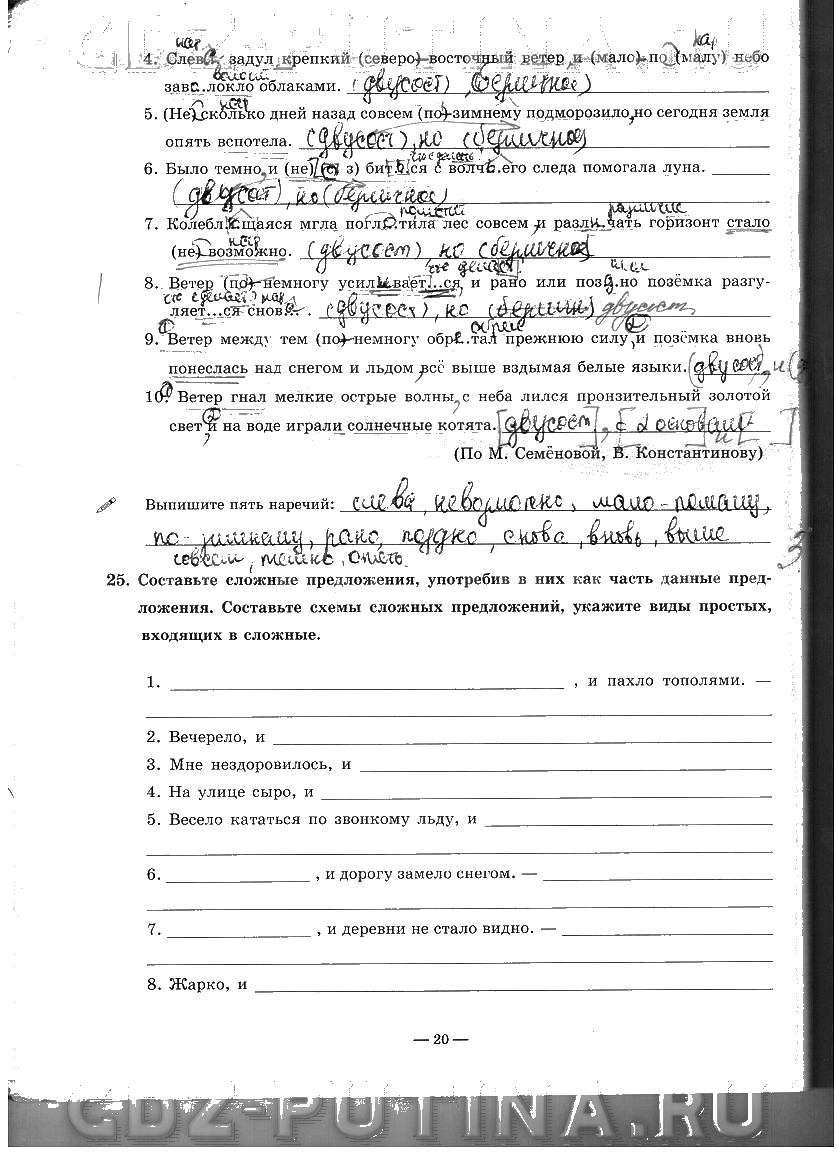 GDZ-PUTINA.RU
нар нар
4. Слева задул крепкий (северо)-восточный ветер, и (мало)-по (малу) небо
зав..локло облаками. (двусост), (безличное)
нар
5. (Не)сколько дней назад совсем (по)-зимнему подморозило, но сегодня земля
опять вспотела. (двусост), но (безличное)
что делать
6. Было темно, и (не) (с, з) бит..ся с волч..его следа помогала луна.
(двусост), но (безличное)
7. Колебл..щаяся мгла погл..тила лес совсем, и разл..чать горизонт стало
нар
(не)возможно. (двусост) но (безличное)
что делает
8. Ветер (по)-немногу усил..вает...ся, и рано или поз..но позёмка разгу-
что сделает? нар
ляет...ся снов... (двусост), но (безличн) двусост
9. Ветер между тем (по)-немногу обр..тал прежнюю силу, и позёмка вновь
понеслась над снегом и льдом, всё выше вздымая белые языки. (двусост), и (
10. Ветер гнал мелкие острые волны, с неба лился пронзительный золотой
свет и на воде играли солнечные котята. [двусост], с 2 основами [ ] и [ ]
(По М. Семёновой, В. Константинову)
Выпишите пять наречий: слева, невозможно, мало-помалу,
по-зимнему, рано, поздно, снова, вновь, выше
совсем, темно, опять.
25. Составьте сложные предложения, употребив в них как часть данные пред-
ложения. Составьте схемы сложных предложений, укажите виды простых,
входящих в сложные.
1. , и пахло тополями. —
2. Вечерело, и
3. Мне нездоровилось, и
4. На улице сыро, и
5. Весело кататься по звонкому льду, и
6. , и дорогу замело снегом. —
7. , и деревни не стало видно. —
8. Жарко, и
— 20 —
GDZ-PUTINA.RU